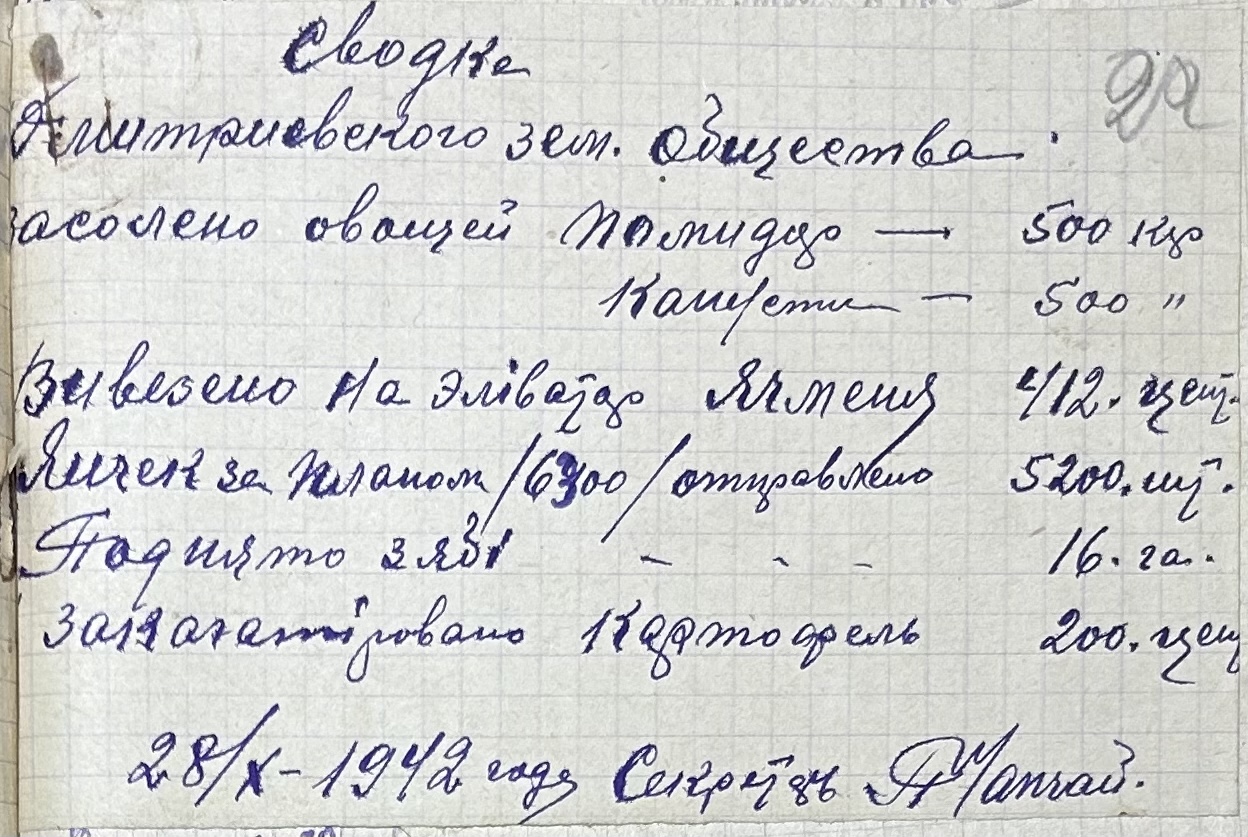 Сводка
Дмитриевского зем. Общества.
засолено овощей Помидор — 500 кгр
Капусти — 500 "
Вивезено на эліватор Ячменя 412. цент.
Яичек за планом /6300/ отправлено 5200. шт.
Поднято зябі - - - 16. га.
Закагатіровано Картофель 200. цент
28/X - 1942 года Секретарь